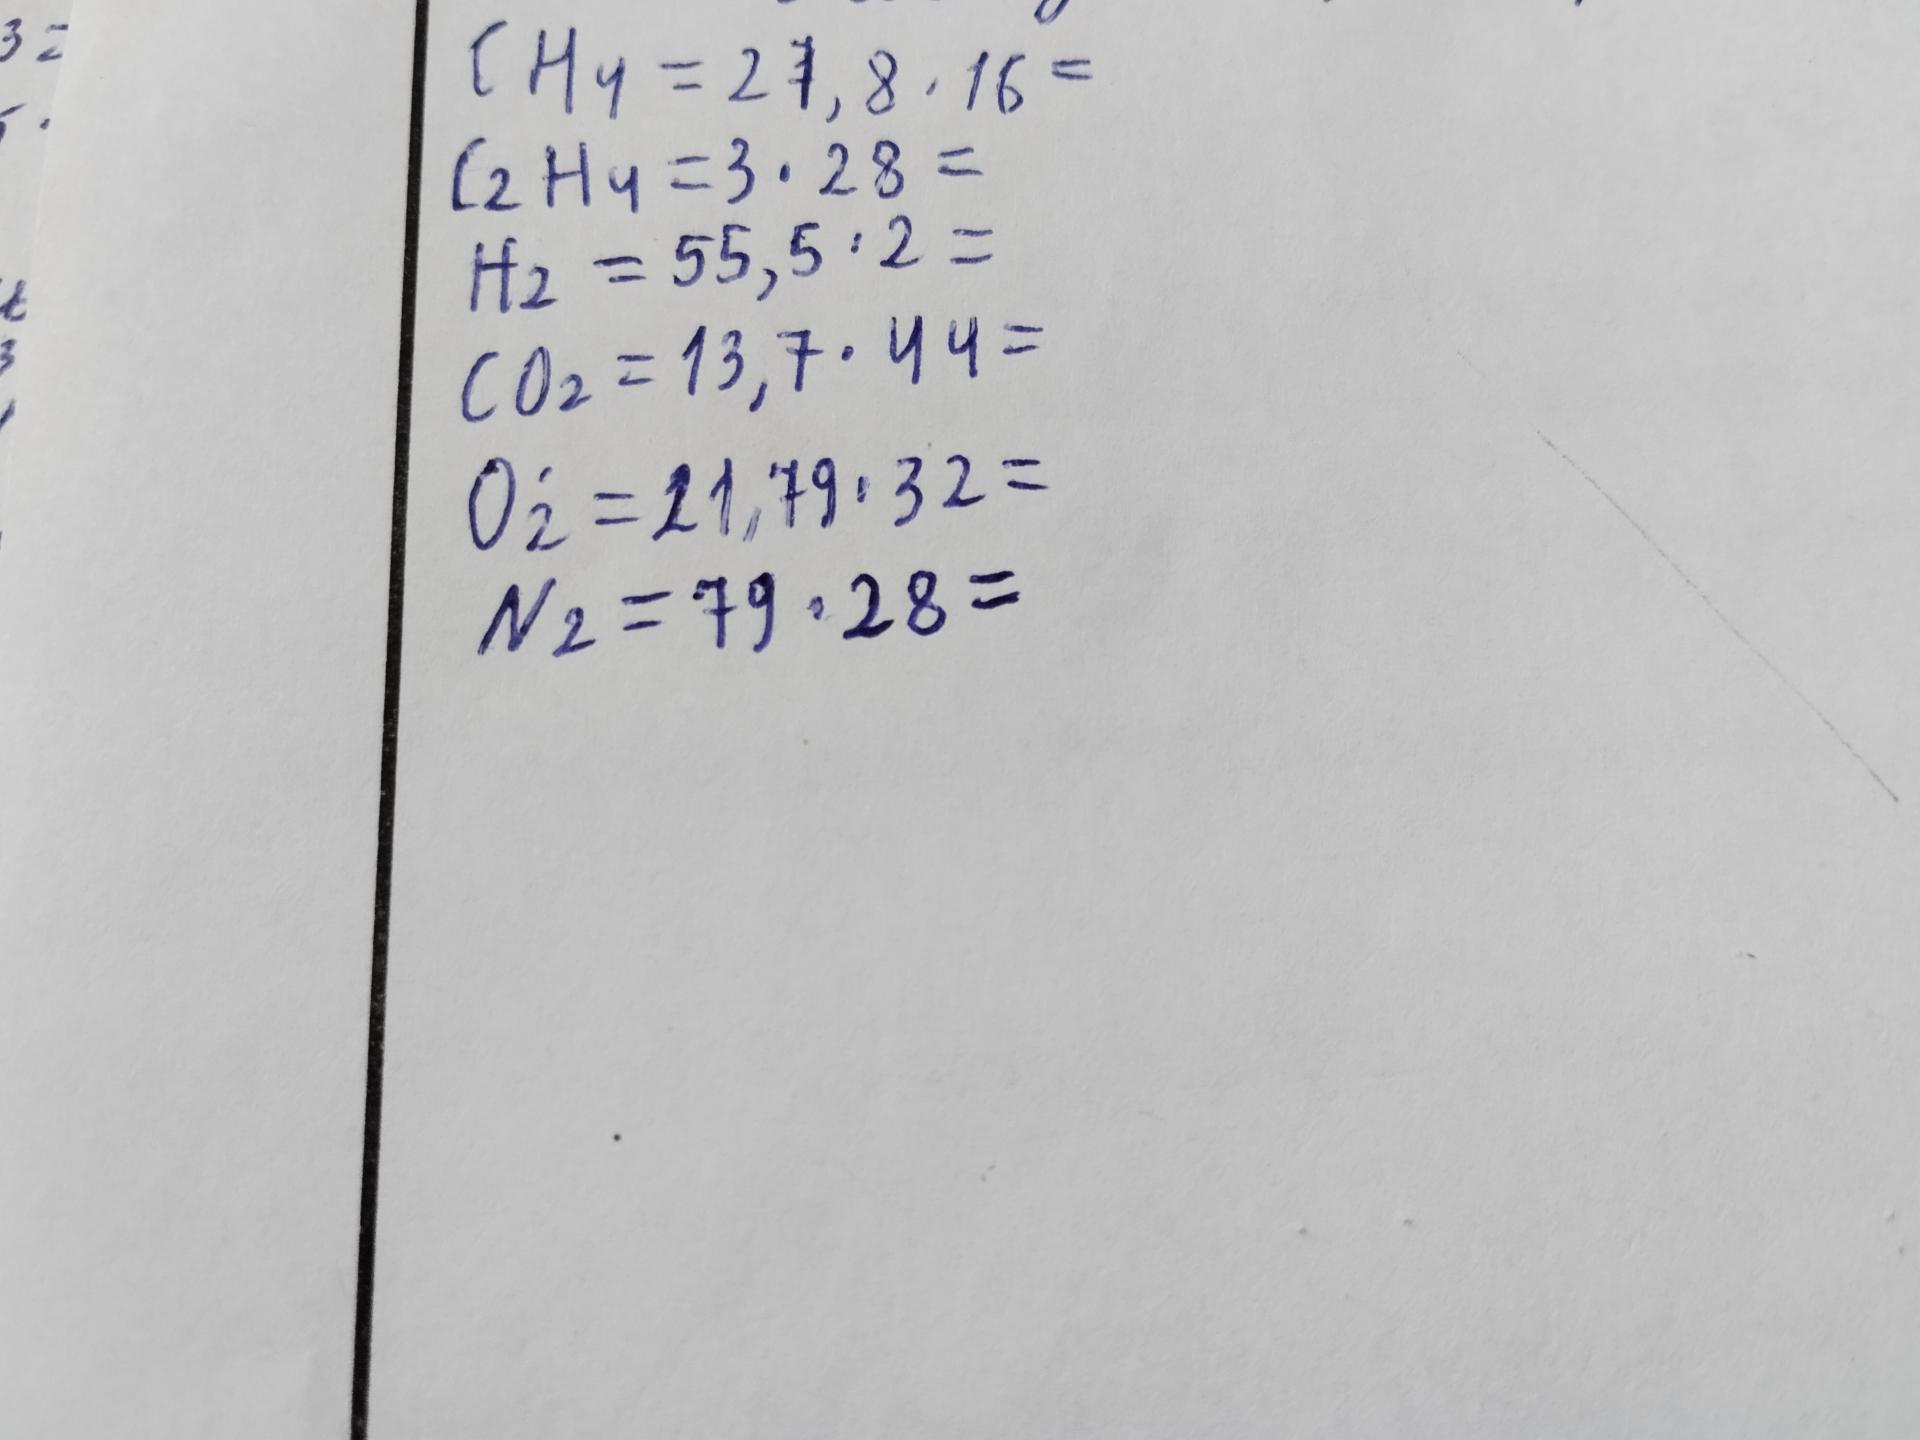 3=
5.
CH4 = 27,8 · 16 =
C2H4 = 3 · 28 =
H2 = 55,5 · 2 =
CO2 = 13,7 · 44 =
O2 = 21,79 · 32 =
N2 = 79 · 28 =